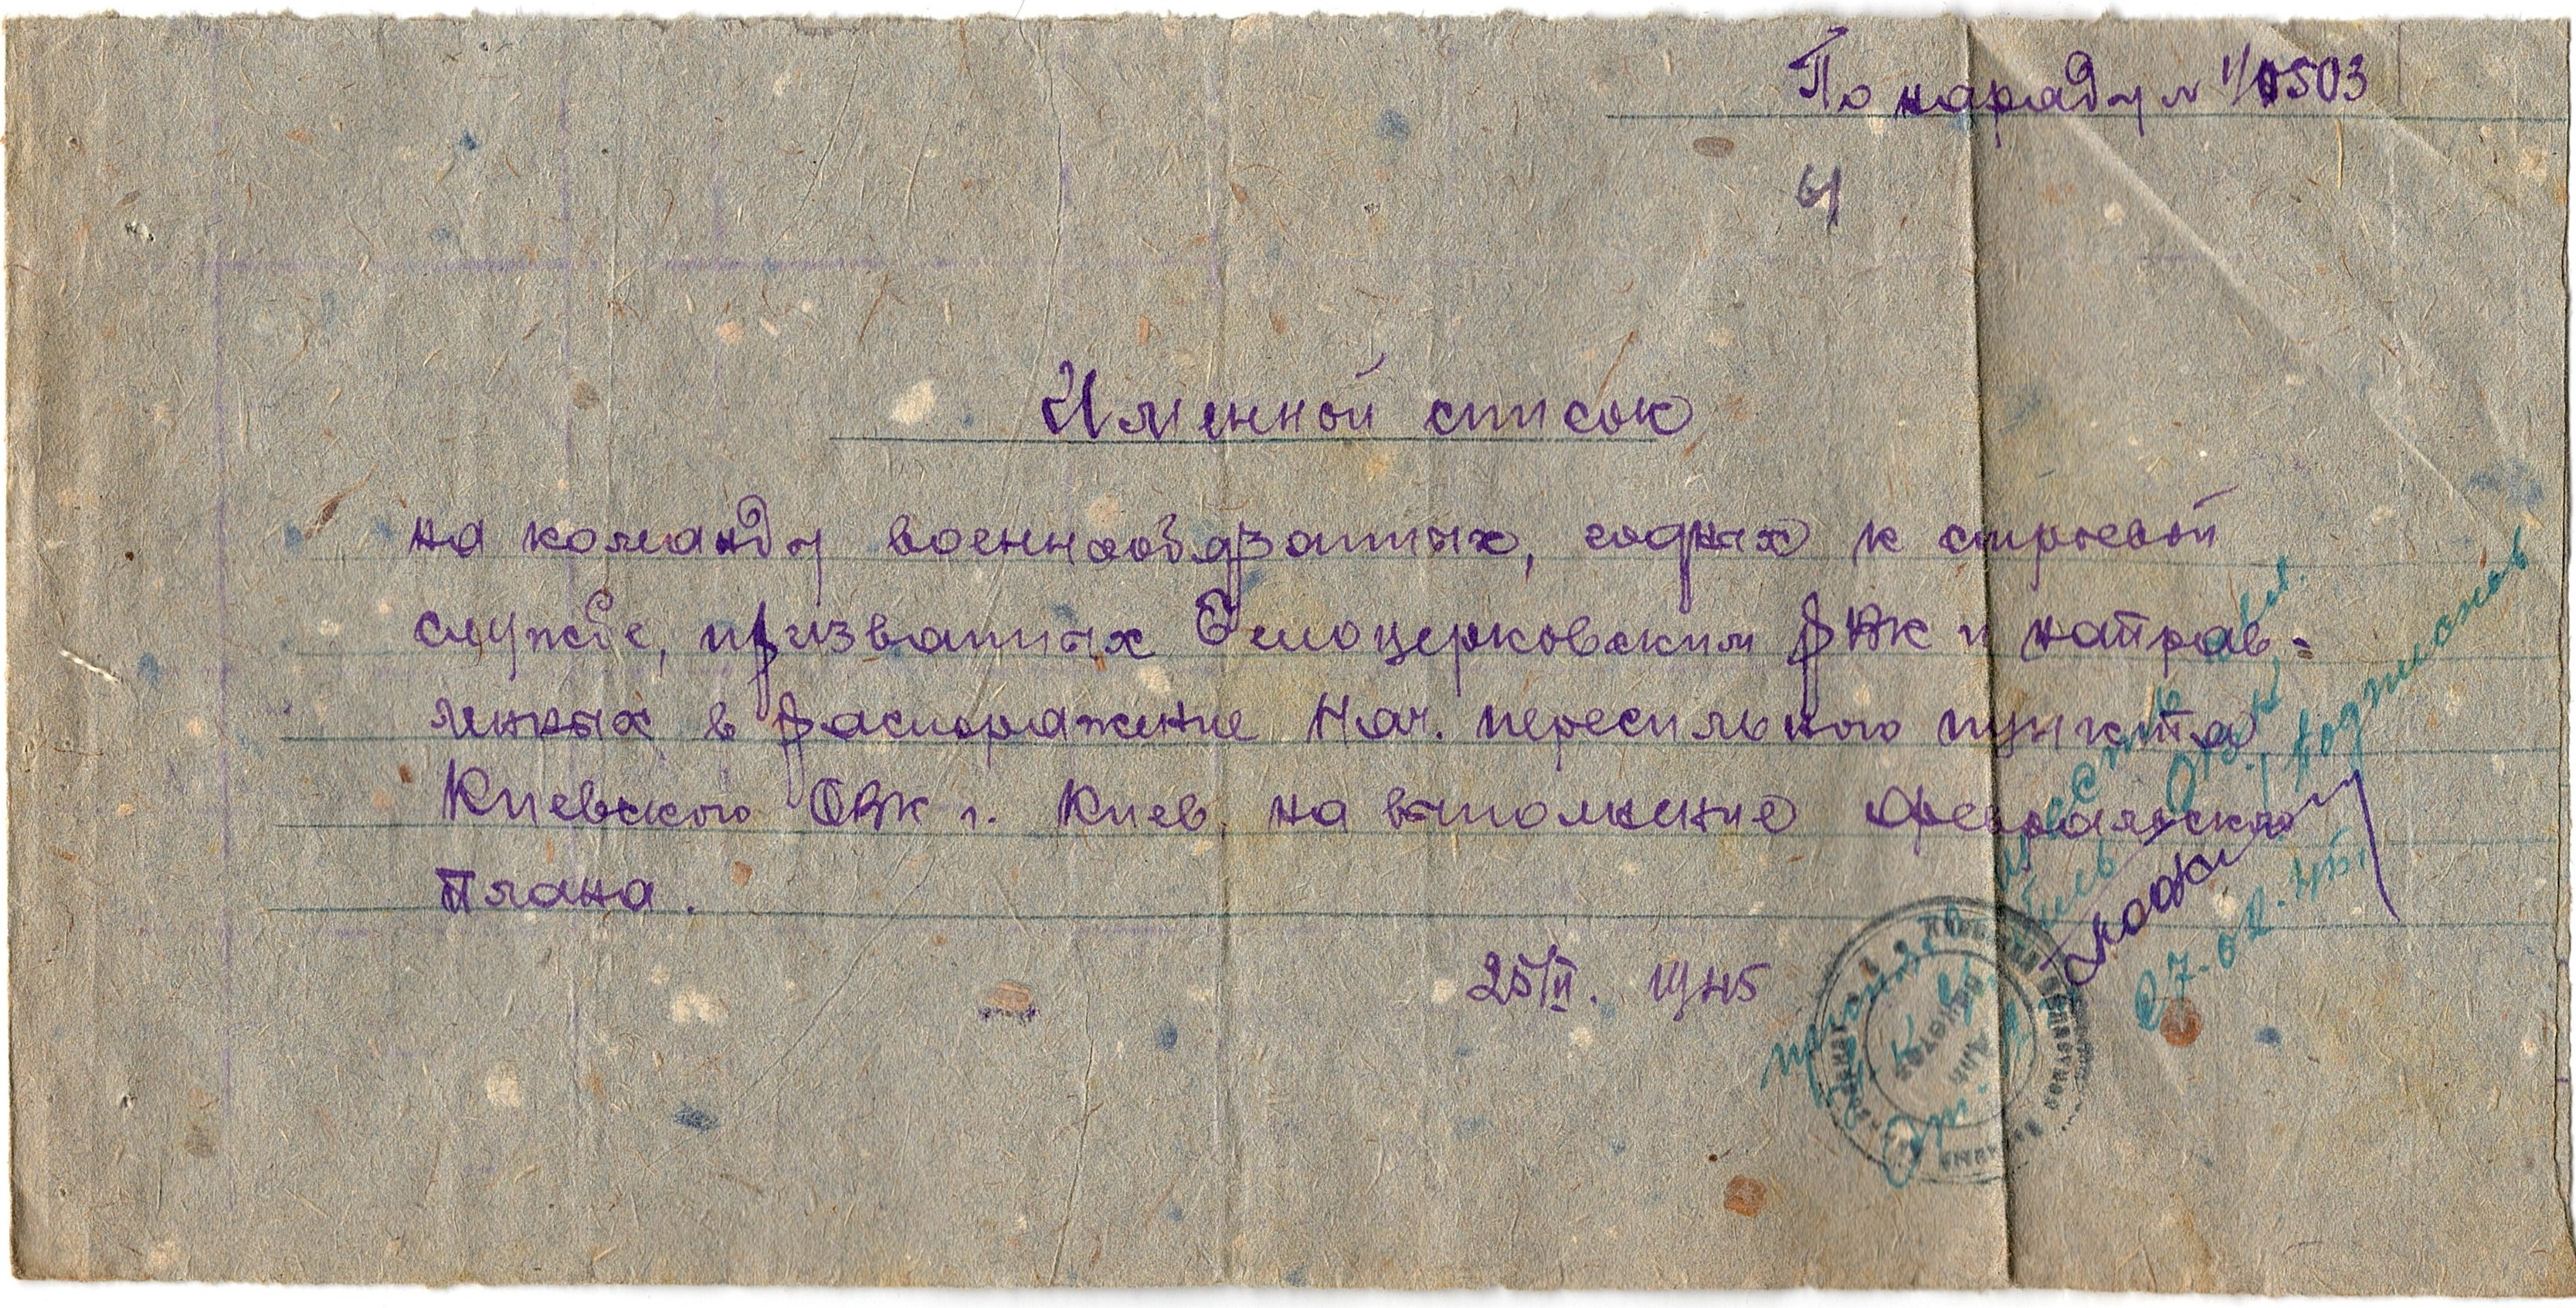 По наряду № 1/0503
Именной список
на команду военнообязанных, годных к строевой
службе, призванных Белоцерковским РВК и направ=
ленных в распоряжение Нач. пересыльного пункта
Киевского ОВК г. Киев, на выполнение февральского
плана.
25/II. 1945
27.02.45